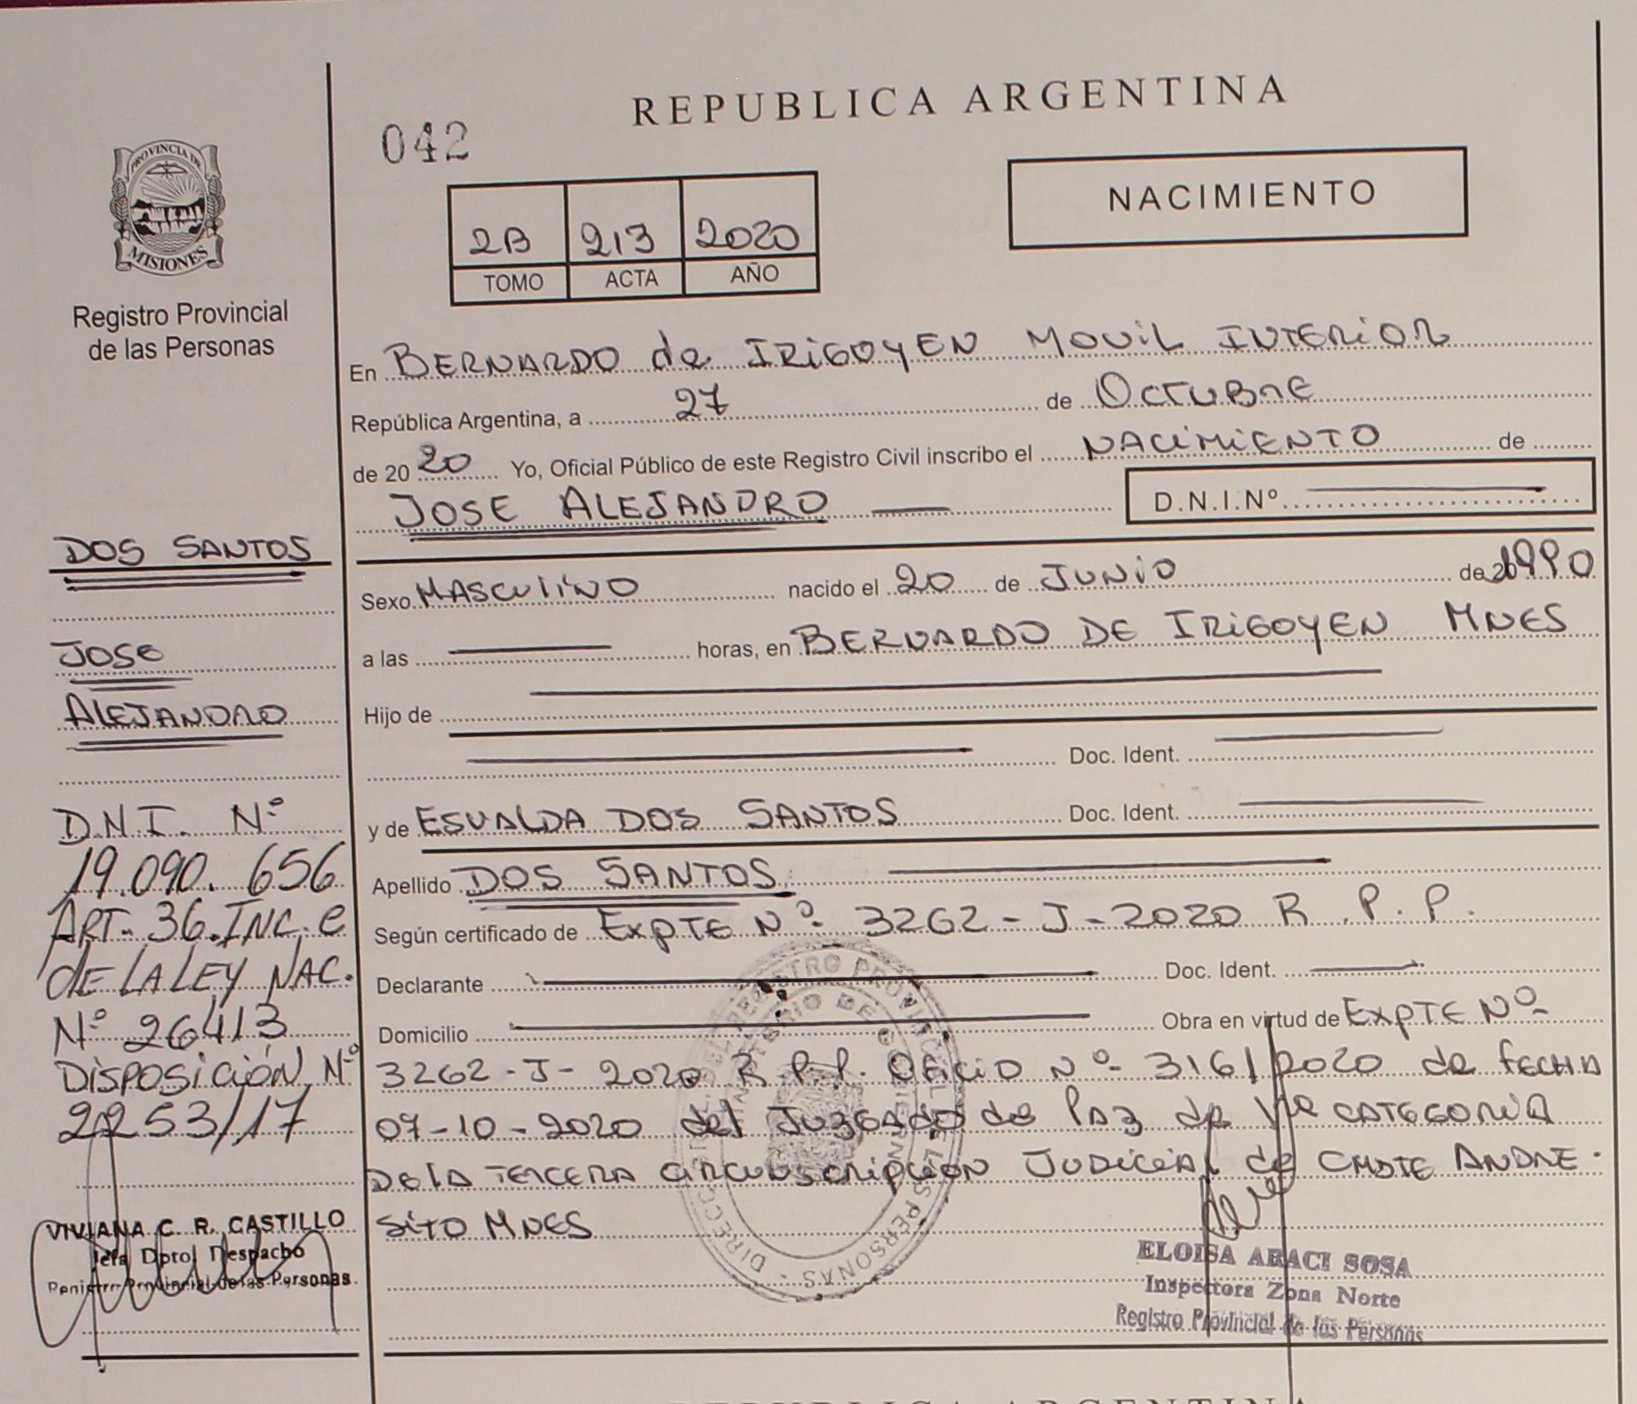 REPUBLICA ARGENTINA
042
NACIMIENTO
2B 213 2020
TOMO ACTA AÑO
PROVINCIA DE
MISIONES
Registro Provincial
de las Personas
DOS SANTOS
JOSE
ALEJANDRO
D.N.I. Nº
19.090.656
ART. 36. INC. C
DE LA LEY NAC.
Nº 26413
DISPOSICIÓN Nº
2253/17
VIVIANA C. R. CASTILLO
Jefa Dpto. Despacho
Registro Provincial de las Personas
En BERNARDO de IRIGOYEN MOVIL INTERIOR
República Argentina, a 27 de OCTUBRE
de 2020 Yo, Oficial Público de este Registro Civil inscribo el NACIMIENTO de
JOSE ALEJANDRO D.N.I.Nº
Sexo MASCULINO nacido el 20 de JUNIO de 1990
a las horas, en BERNARDO DE IRIGOYEN MNES
Hijo de
Doc. Ident.
y de ESVALDA DOS SANTOS Doc. Ident.
Apellido DOS SANTOS
Según certificado de EXPTE Nº 3262-J-2020 R.P.P.
Declarante Doc. Ident.
Domicilio Obra en virtud de EXPTE Nº
3262-J-2020 R.P.P. OFICIO Nº 316/2020 de FECHA
07-10-2020 del JUZGADO de PAZ de CATEGORIA
DE LA TERCERA CIRCUNSCRIPCION JUDICIAL de CMDTE ANDRE-
SITO MNES
ELOISA ABACI SOSA
Inspectora Zona Norte
Registro Provincial de las Personas
REPUBLICA ARGENTINA